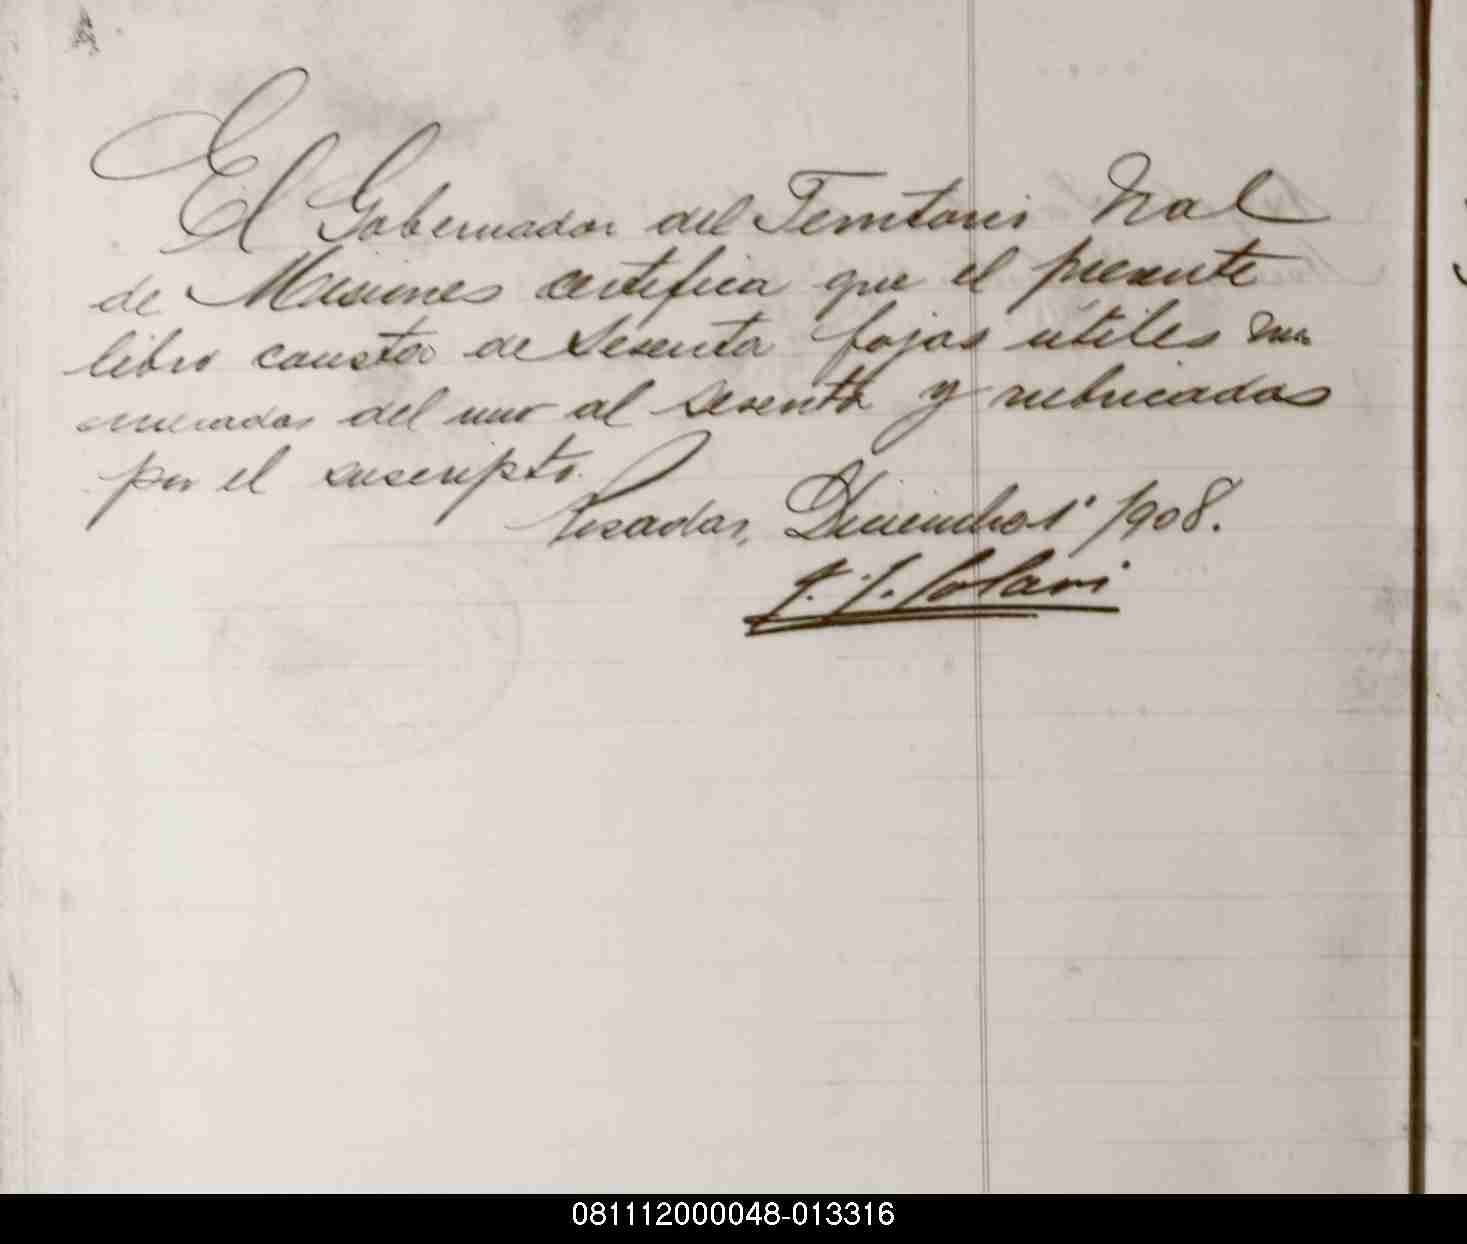 El Gobernador del Territorio Nal
de Misiones certifica que el presente
libro consta de sesenta fojas útiles nu
merados del uno al sesenta y rubricadas
por el suscripto.
Posadas, Diciembre 1º 1908.
J. J. Solari
081112000048-013316